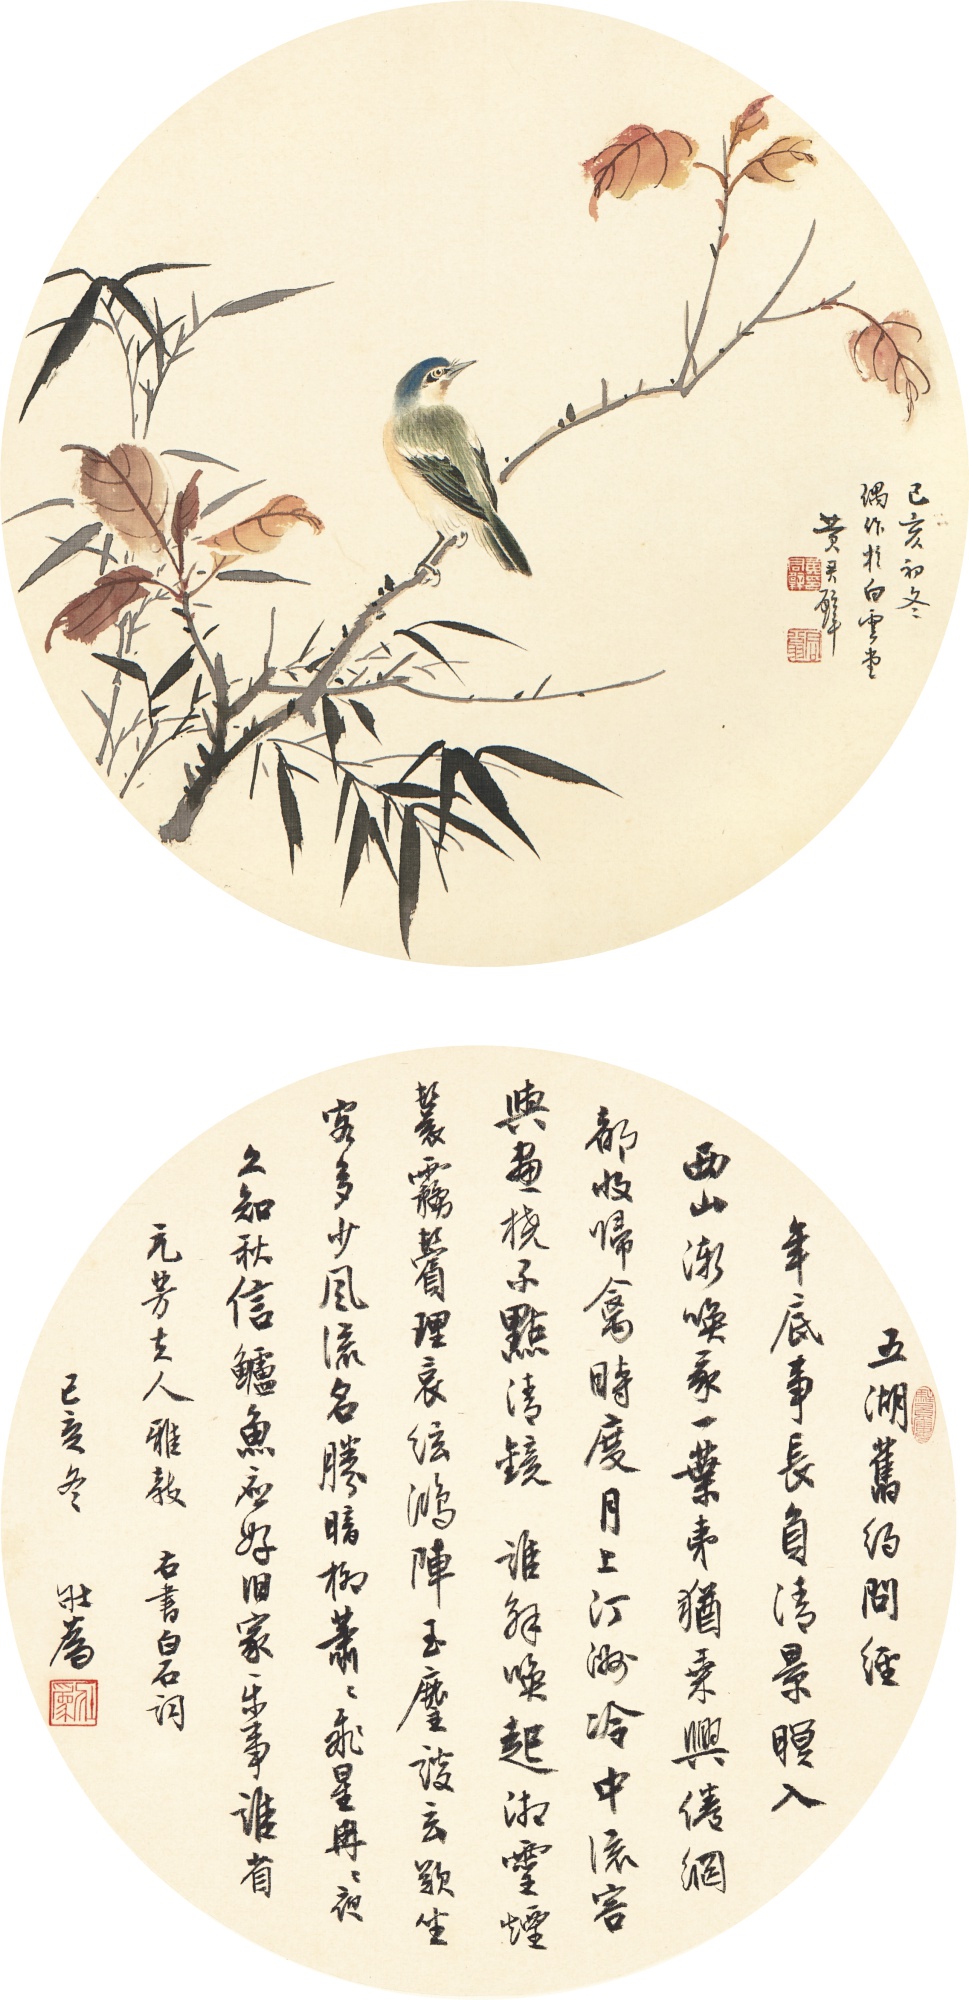 己亥初冬
偶作於白雲堂
黃君璧
五湖舊約問經
年底事長負清景暝入
西山漸喚我一葉夷猶乘興倦網
都收歸禽時度月上汀洲冷中流容
與畫橈不點清鏡 誰解喚起湘靈煙
鬟霧鬢理哀絃鴻陣玉麈談玄歎坐
客多少風流名勝暗柳蕭〻飛星冉〻夜
久知秋信鱸魚應好旧家樂事誰省
元芳夫人雅教 右書白石詞
己亥冬 壯為